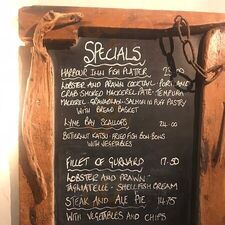 SPECIALS
HARBOUR INN FISH PLATTER
LOBSTER AND PRAWN COCKTAIL · PORT AND
CRAB SMOKED MACKEREL PATE · TEMPURA
MACKEREL GRAVADLAX · SALMON IN PUFF PASTRY
WITH BREAD BASKET
LYME BAY SCALLOPS 24.00
BUTTERNUT KATSU · FRIED FISH BON-BONS
WITH VEGETABLES
FILLET OF GURNARD 17.50
LOBSTER AND PRAWN
TAGLIATELLE · SHELLFISH CREAM
STEAK AND ALE PIE 14.75
WITH VEGETABLES AND CHIPS